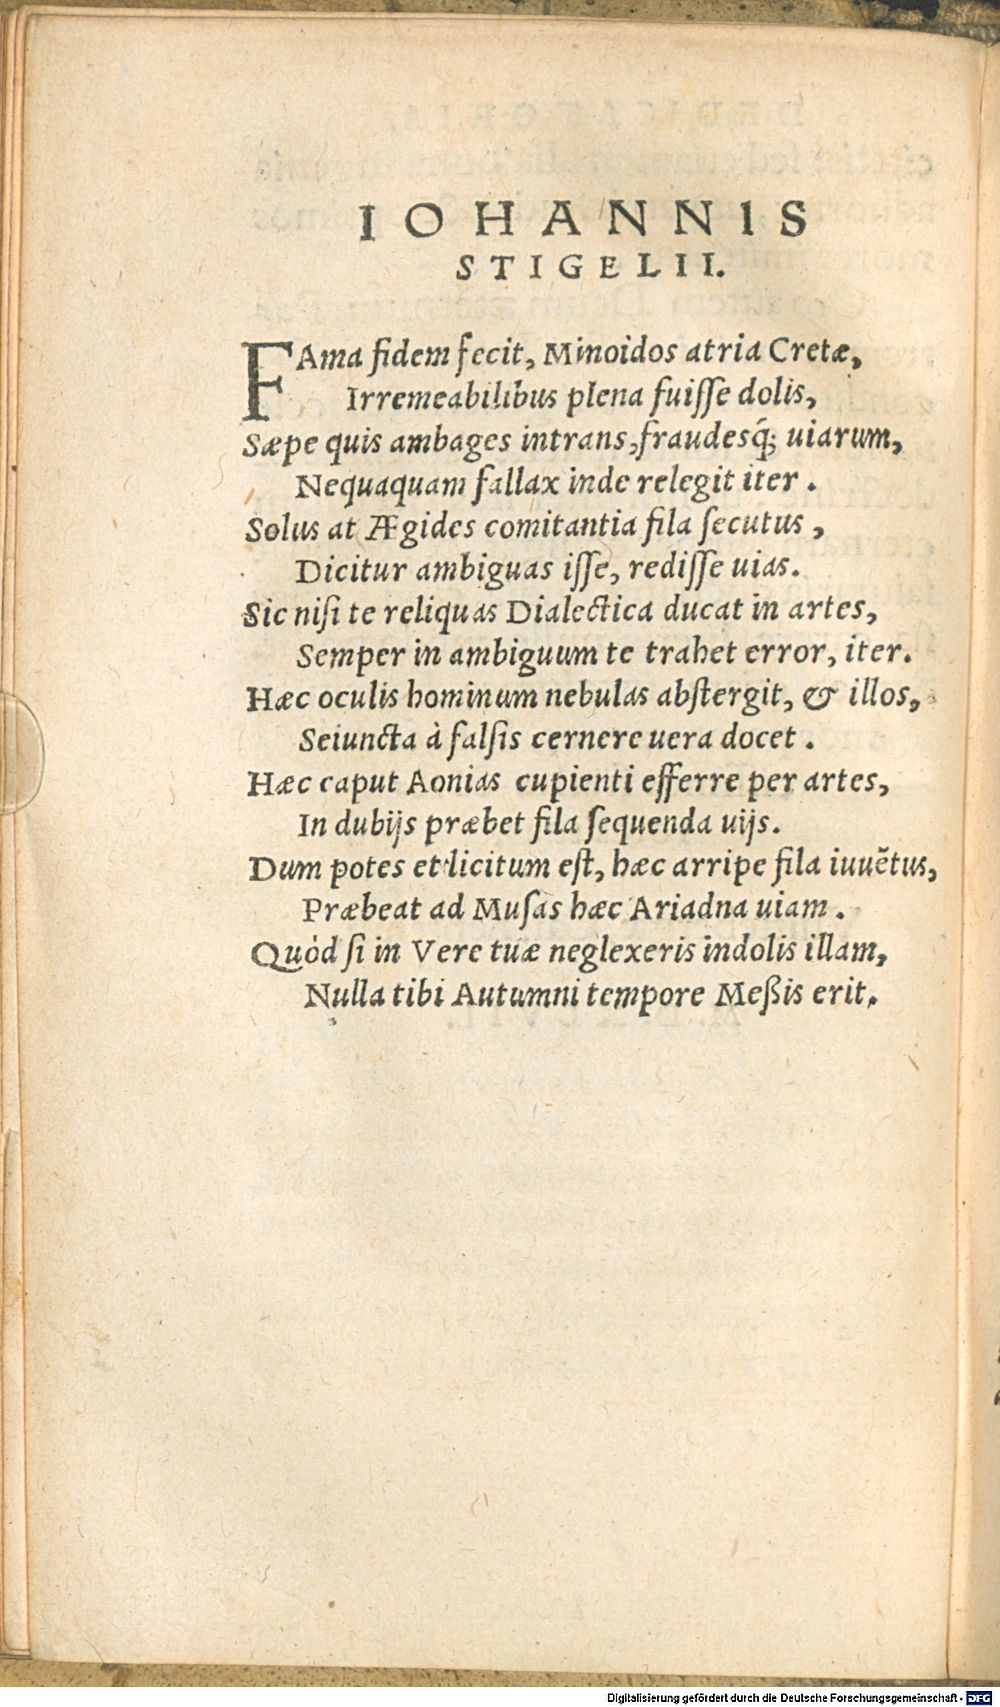 IOHANNIS
STIGELII.
FAma fidem fecit, Minoidos atria Cretæ,
Irremeabilibus plena fuiſſe dolis,
Sæpe quis ambages intrans, fraudesq́; uiarum,
Nequaquam fallax inde relegit iter.
Solus at Ægides comitantia fila ſecutus,
Dicitur ambiguas iſſe, rediſſe uias.
Sic niſi te reliquas Dialectica ducat in artes,
Semper in ambiguum te trahet error, iter.
Hæc oculis hominum nebulas abſtergit, & illos,
Seiuncta à falſis cernere uera docet.
Hæc caput Aonias cupienti efferre per artes,
In dubijs præbet fila ſequenda uijs.
Dum potes et licitum eſt, hæc arripe fila iuuẽtus,
Præbeat ad Muſas hæc Ariadna uiam.
Quòd ſi in Vere tuæ neglexeris indolis illam,
Nulla tibi Autumni tempore Meßis erit.
Digitalisierung gefördert durch die Deutsche Forschungsgemeinschaft - DFG